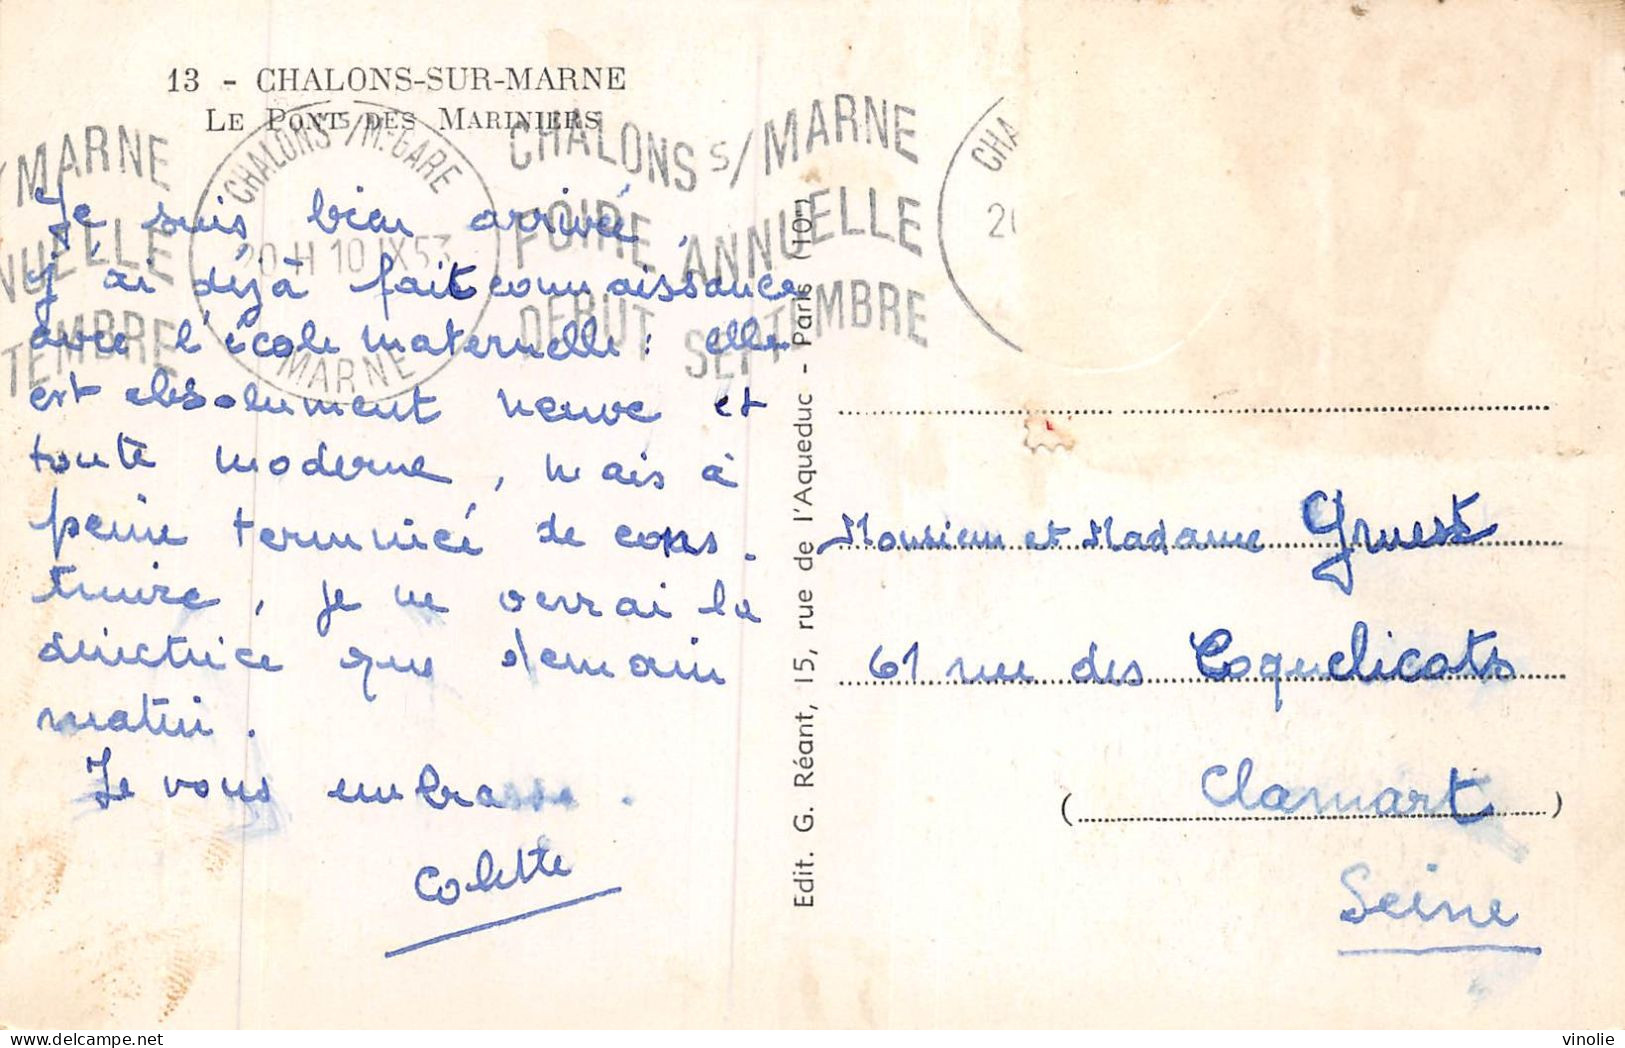 13 - CHALONS-SUR-MARNE
LE PONT DES MARINIERS
/MARNE
NUELLE
TEMBRE
CHALONS s/Mne GARE
20 H 10 IX 53
MARNE
CHALONS s/MARNE
FOIRE ANNUELLE
DEBUT SEPTEMBRE
CHA
20
Je suis bien arrivée,
j'ai déjà fait connaissance
avec l'école maternelle : elle
est absolument neuve et
toute moderne, mais à
peine terminée de cons-
truire, je ne verrai la
directrice que demain
matin.
Je vous embrasse.
Colette
Edit. G. Réant, 15, rue de l'Aqueduc - Paris (10e)
Monsieur et Madame
61 rue des Coquelicots
(Clamart)
Seine
vinolie